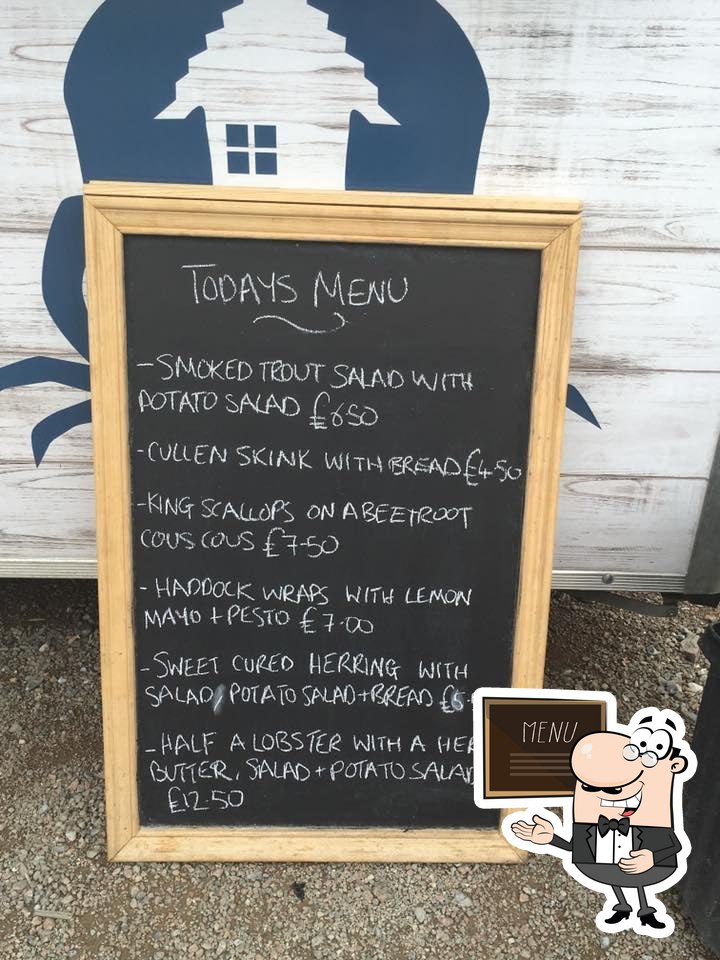 TODAYS MENU
- SMOKED TROUT SALAD WITH
POTATO SALAD £6.50
- CULLEN SKINK WITH BREAD £4.50
- KING SCALLOPS ON A BEETROOT
COUS COUS £7.50
- HADDOCK WRAPS WITH LEMON
MAYO + PESTO £7.00
- SWEET CURED HERRING WITH
SALAD, POTATO SALAD + BREAD
- HALF A LOBSTER WITH A
BUTTER, SALAD + POTATO
£12.50
MENU